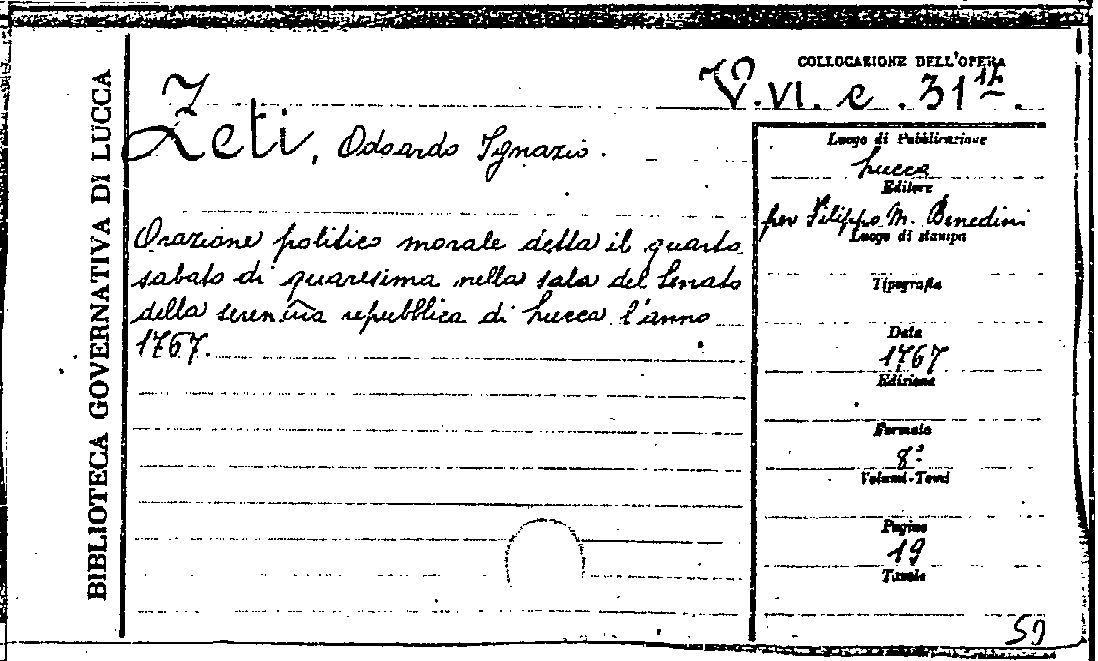 BIBLIOTECA GOVERNATIVA DI LUCCA
COLLOCAZIONE DELL'OPERA
Z
Zeti, Odoardo Ignazio.
Orazione politico morale detta il quarto
sabato di quaresima nella sala del Senato
della seren͞ia repubblica di Lucca l'anno
1767.
Luogo di Pubblicazione
Lucca
Editore
per Filippo M. Benedini
Luogo di stampa
Tipografia
Data
1767
Edizione
Formato
8°
Volumi-Tomi
Pagine
19
Tavole